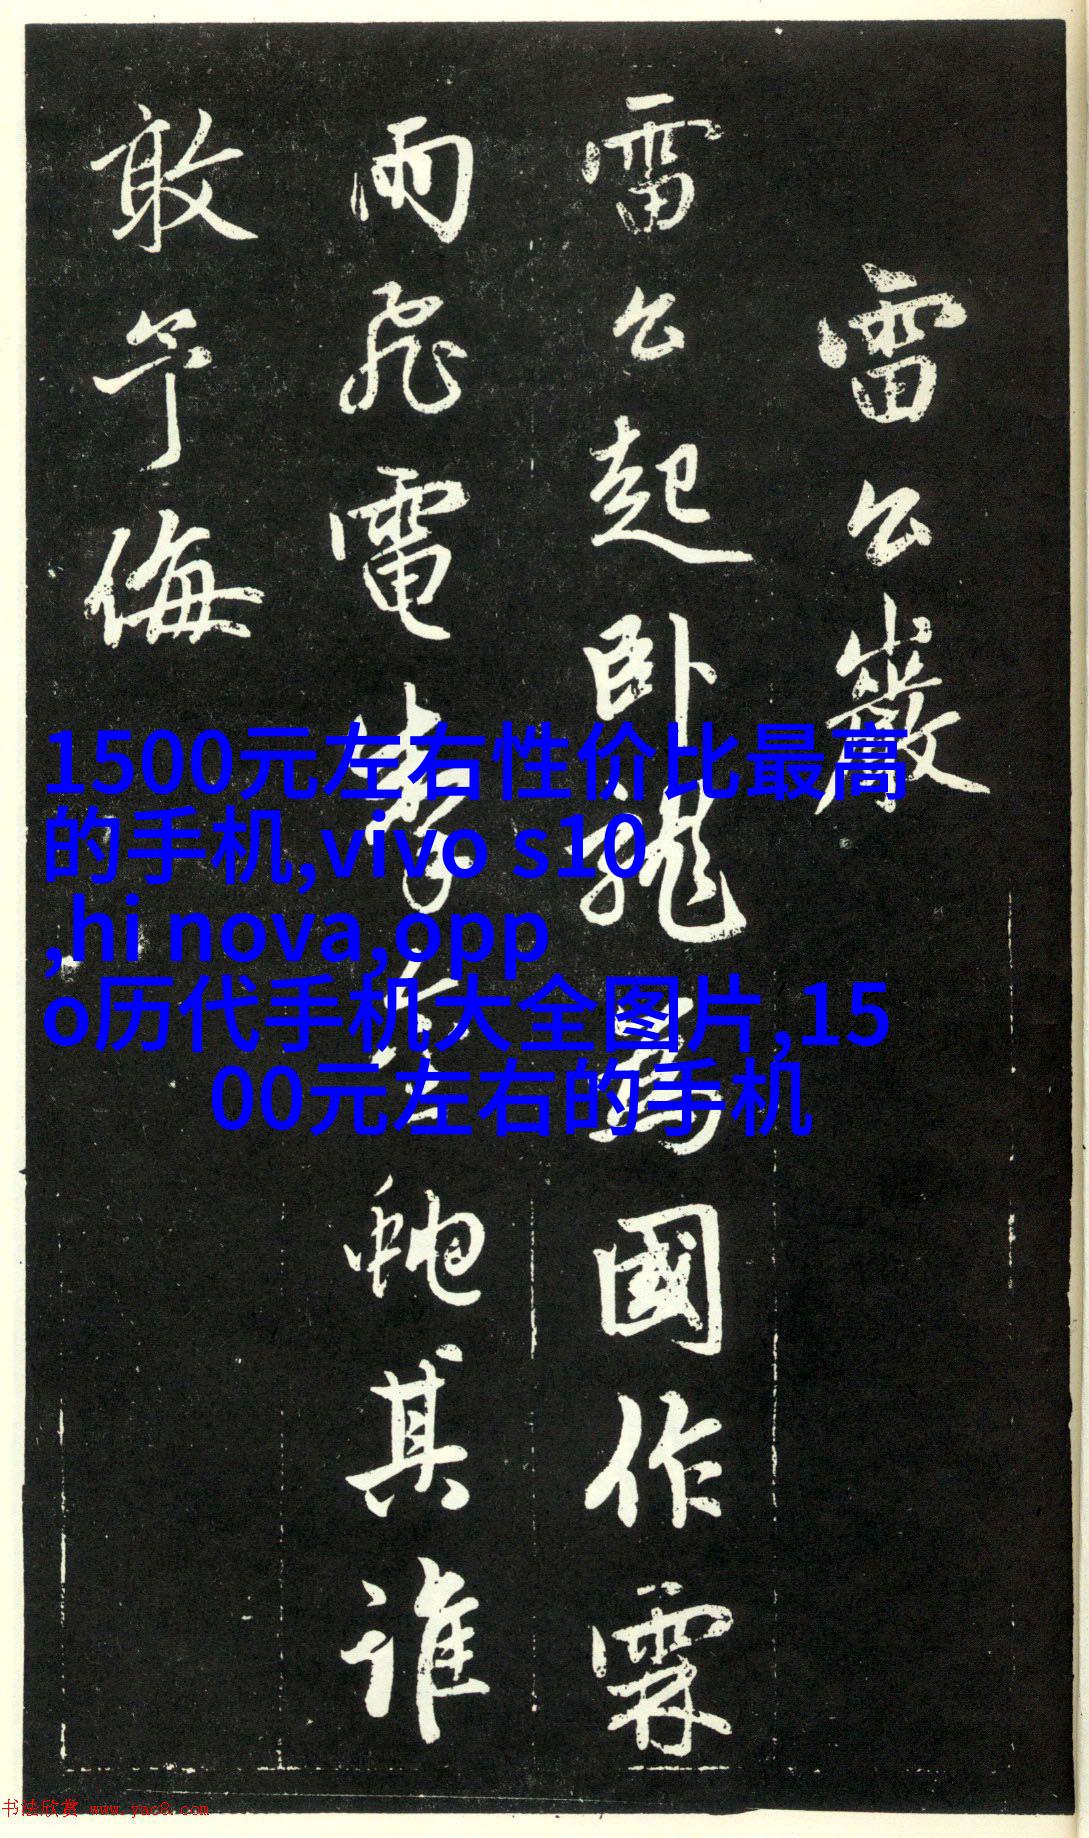 雷公巖
雷公起卧龍為國作霖
雨飛電掣金虵其誰
敢予侮
1500元左右性价比最高
的手机,vivo s10
,hi nova,opp
o历代手机大全图片,15
00元左右的手机
书法欣赏 www.yac8.com